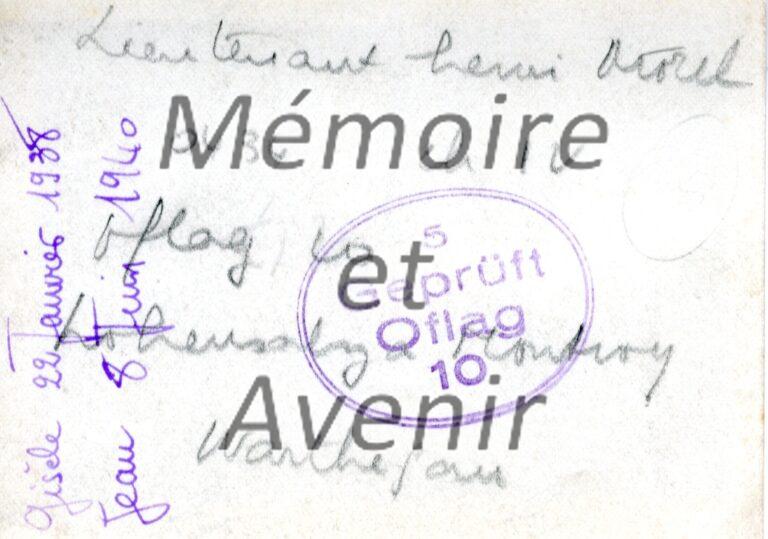 Lieutenant henri Morel
Mémoire
oflag
et
5
Geprüft
Oflag
10.
Avenir
Warthegau
Gisèle 22 Janvier 1938
Jean 8 Juin 1940